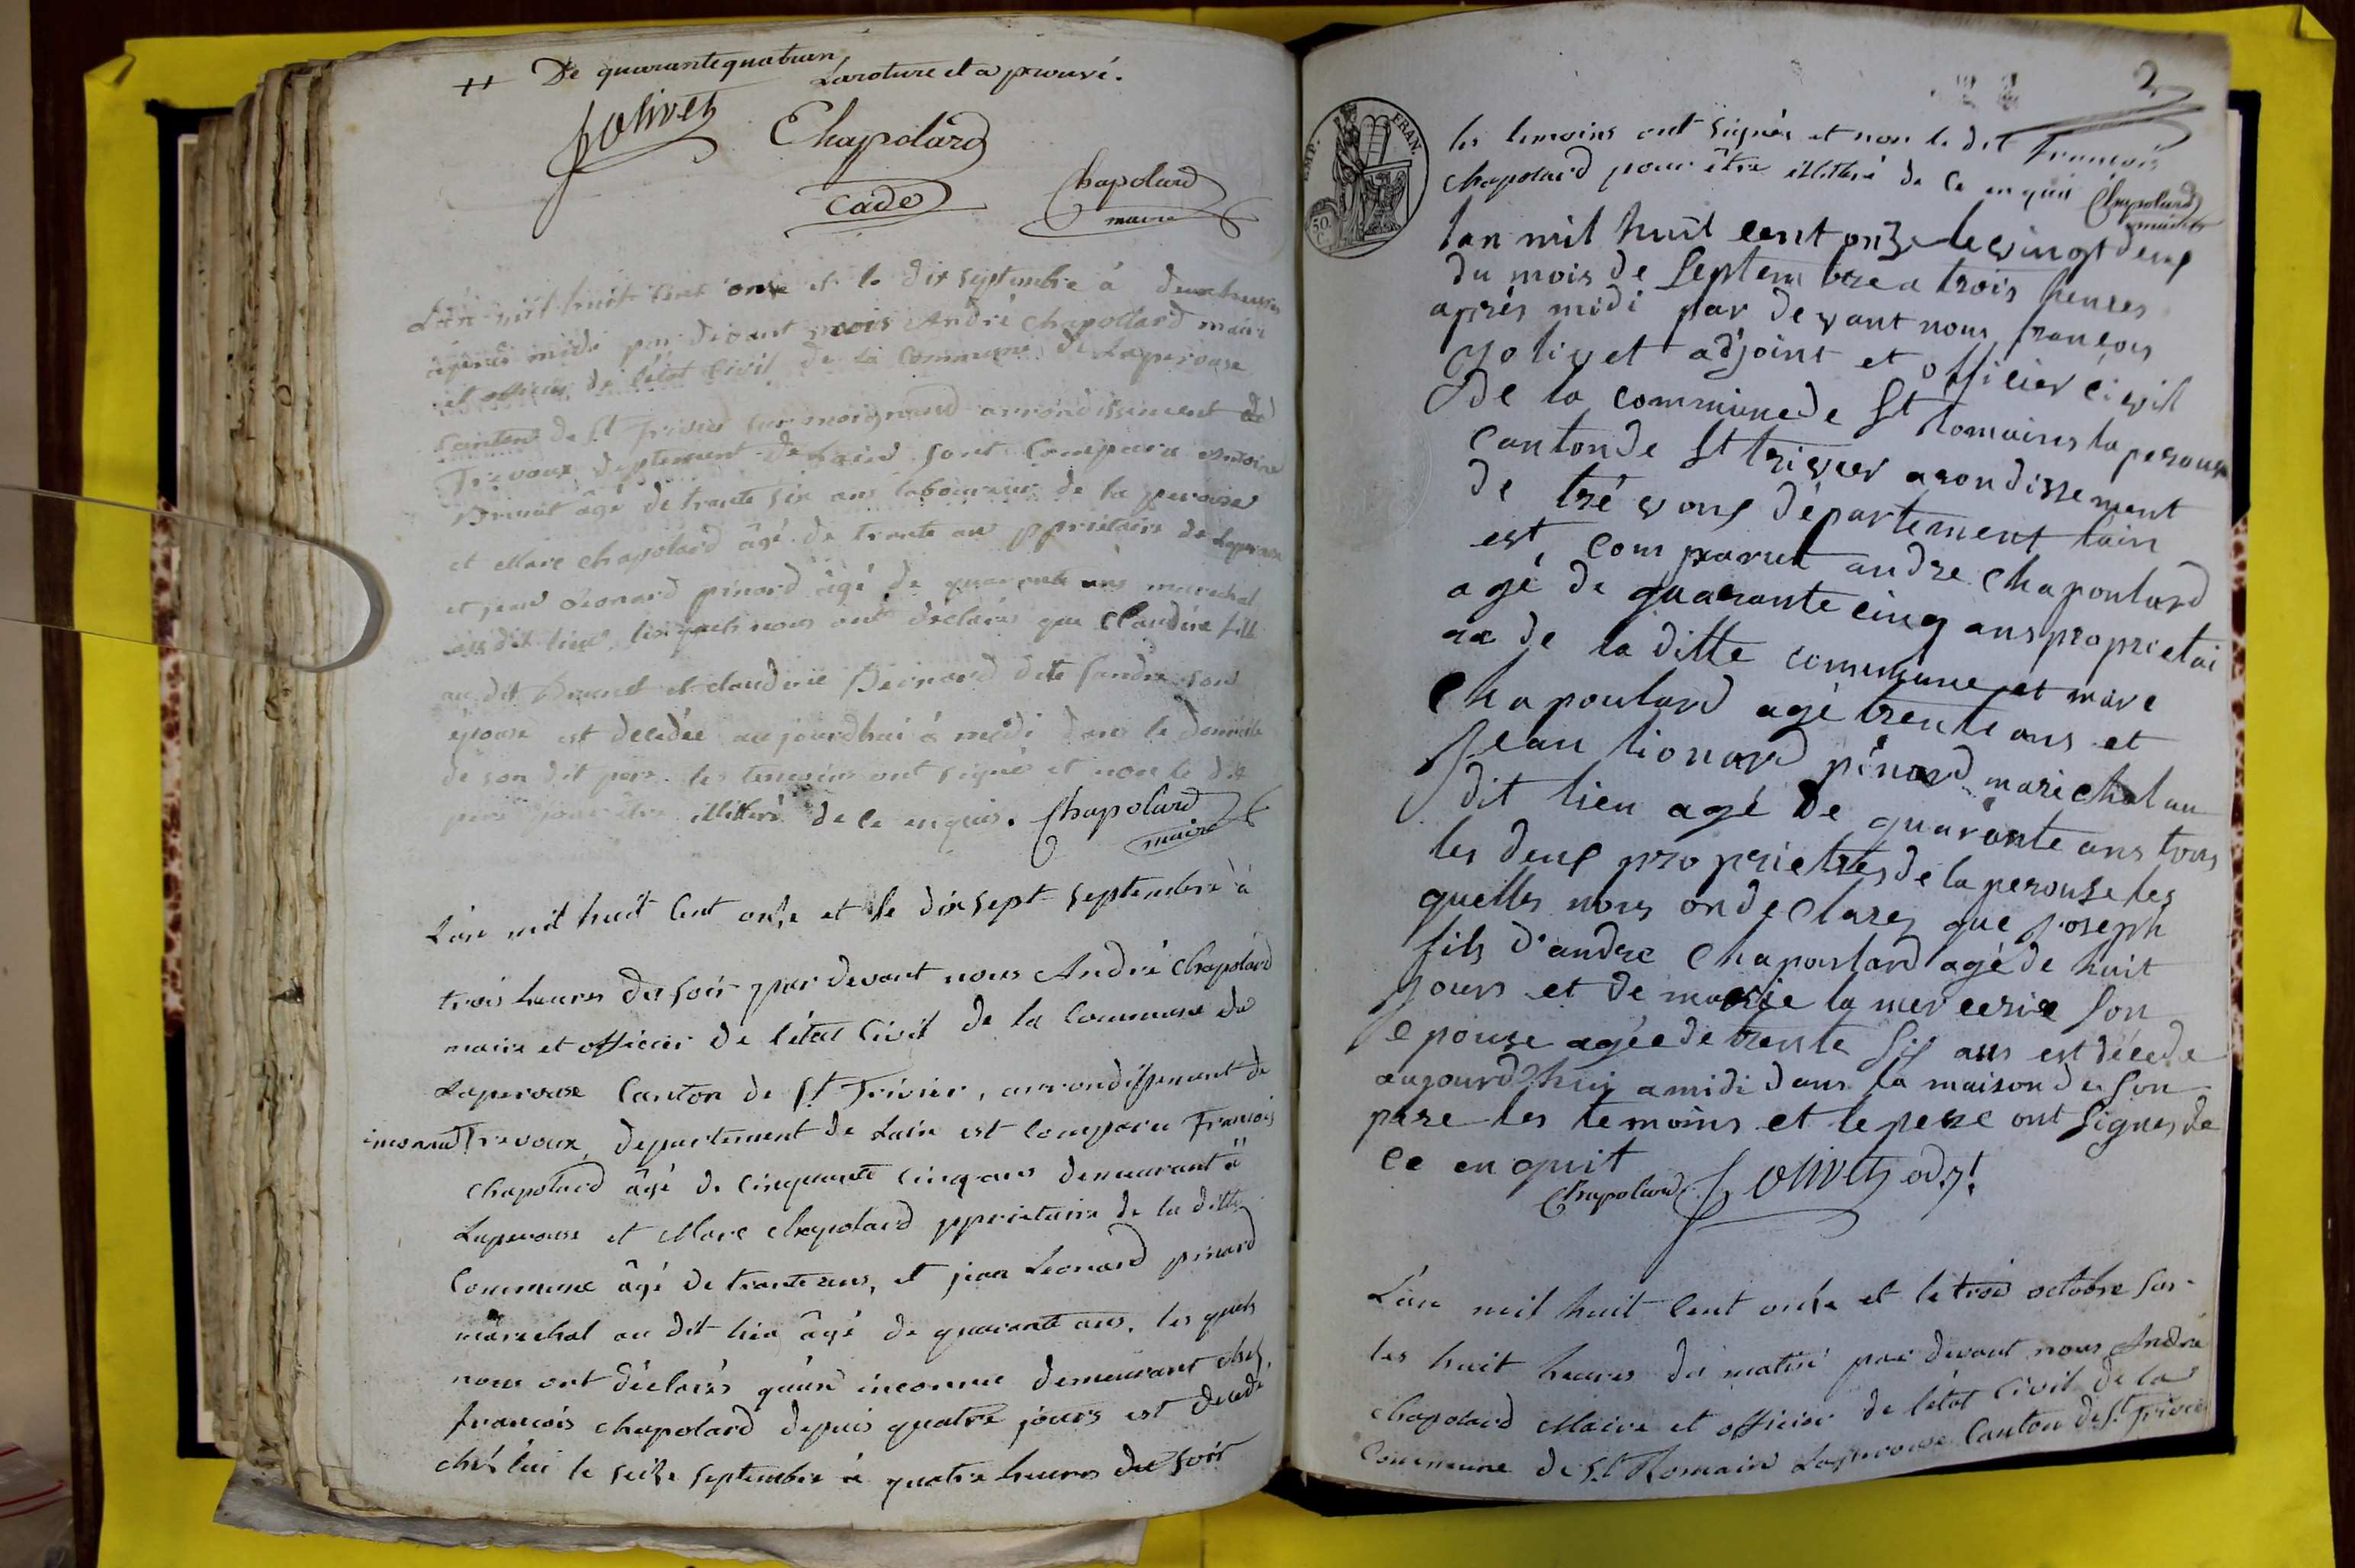 ++ De quarantequatr ans
La roture et a prouvé.
Jolivet Chapolard
Cade Chapolard
maire
L'an mil huit cent onze et le dix septembre à deux heures
après midi par devant nous André Chapolard maire
et officier de l'état Civil de la Commune de Laperouse
Canton de St. Trivier sur moignand arrondissement de
Trevoux, deptement De Lain sont Comparu Antoine
Brunet âgé de trante six ans laboureur de la perouse
et Marc Chapolard âgé de trante ans ppriétaire de Laperouse
et jean Léonard pinard âgé de quarante ans marechal
au dit lieu, lesquels nous ont déclarés que Claudine fille
au dit Brunet et claudine Bernard dite sandre son
épouse est decedée aujourdhui à midi dans le domicile
de son dit père. les temoins ont signé et non le dit
père pour être illitéré de ce enquis. Chapolard
maire
L'an mil huit Cent onze et le dix sept septembre à
trois heures du soir par devant nous André Chapolard
maire et officier de l'état Civil de la Commune de
Laperouse Canton de St. Trivier, arrondissement de
inconnu Trevoux, departement de Lain est Comparu François
Chapolard âgé de Cinquante Cinq ans demeurant à
Laperouse et Marc Chapolard ppriétaire de la ditte
Commune âgé de trante ans, et jean Leonard pinard
marechal au dit lieu âgé de quarante ans, les quels
nous ont déclarés qu'un inconnu demeurant chez
françois chapolard depuis quatre jours est decedé
chés lui le seize septembre à quatre heures du soir
2
EMP. FRAN.
50 C
les temoins ont signés et non le dit François
Chapolard pour être illitéré de Ce enquis Chapolard
maire
lan mil huit cent onze le vingt deux
du mois de Septem bre a trois heures
après midi par de vant nous françois
Jolivet adjoint et officier civil
de la commune de St Romains la perouse
canton de St trivier arondissement
de trévoux département lain
est comparut andre Chapoulard
agé de quarante cinq ans proprietai
re de la ditte commune et marc
Chapoulard agé trente ans et
Jean lionard pinard marichal au
dit lieu agé de quarante ans tous
les deux proprietres de la perouse les
quells nous on declarez que joseph
fils d'andre Chapoulard agé de huit
jours et de marie la mercerie son
epouse agée de trente six ans est décede
aujourd'huy a midi dans la maison de son
pere les temoins et le pere ont signes de
ce en quit
Chapolard Jolivet adj!
L'an mil huit Cent onze et le trois octobre sur
les huit heures du matin par devant nous André
Chapolard Maire et officier de l'état Civil de la
Commune de St. Romain Laperouse Canton de St. Trivier